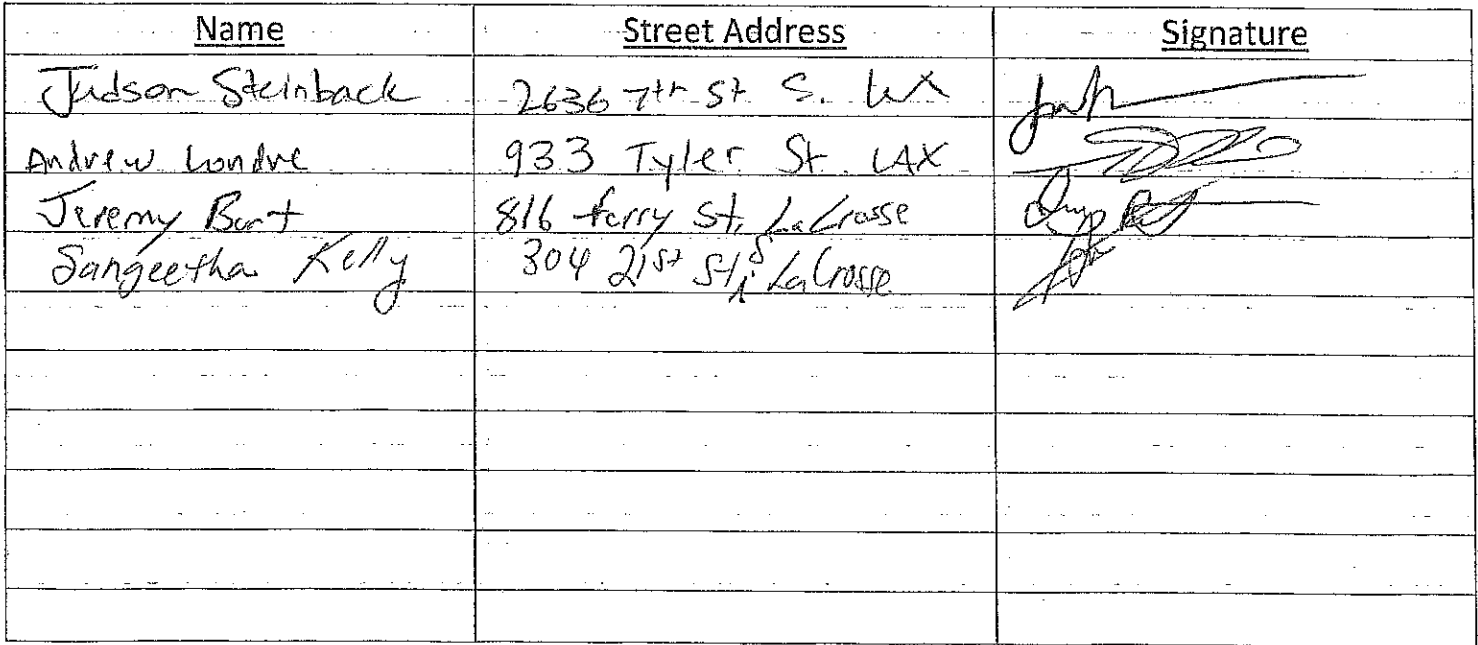 Name Street Address Signature
Judson Steinback 2636 7th St S. LAX
Andrew Londre 933 Tyler St. LAX
Jeremy Bart 816 ferry St, LaCrosse
Sangeetha Kelly 304 21st St, S LaCrosse